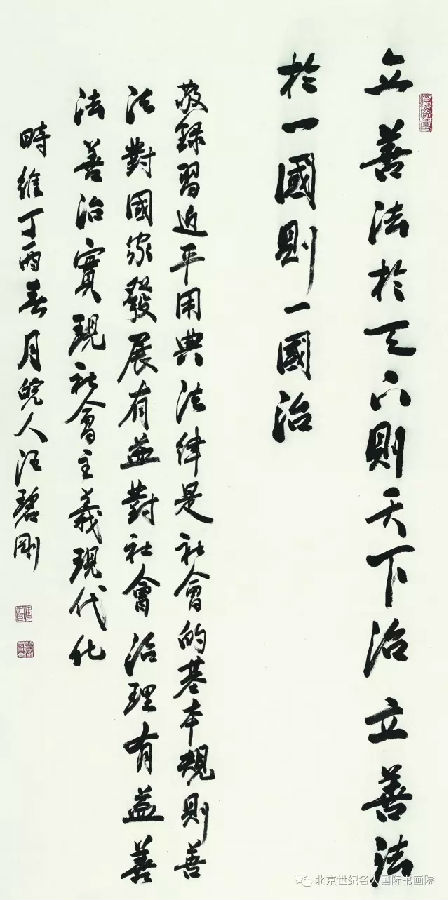 立善法於天下則天下治立善法
於一國則一國治
敬錄習近平用典法律是社會的基本規則善
法對國家發展有益對社會治理有益善
法善治實現社會主義現代化
時維丁酉春月皖人汪碧剛
北京世纪名人国际书画院